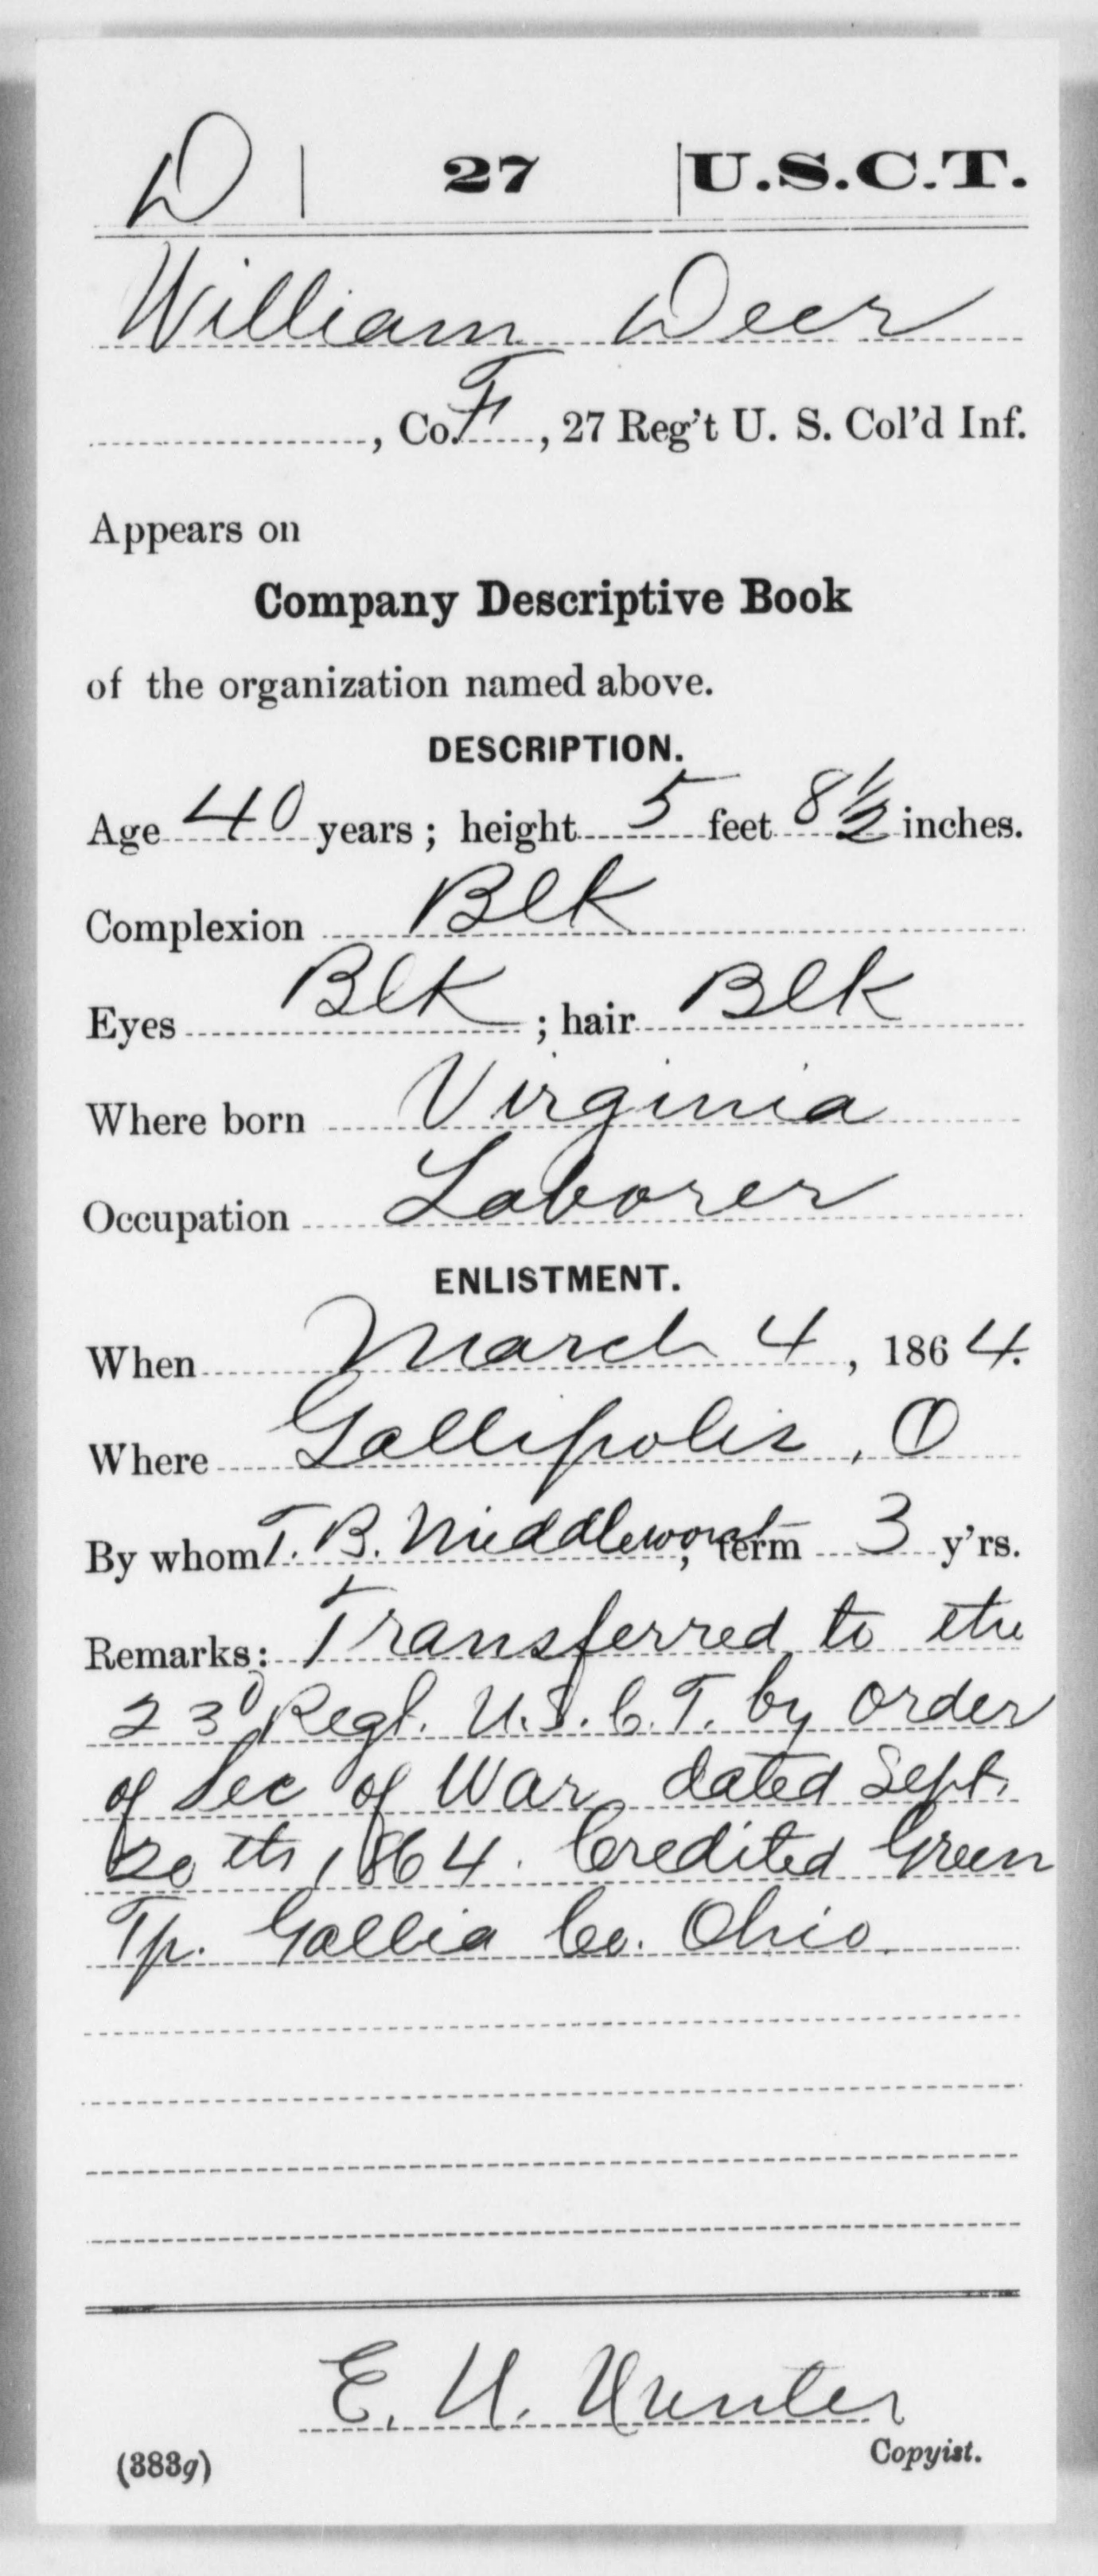 D | 27 | U.S.C.T.
William Deer
, Co. F, 27 Reg't U. S. Col'd Inf.
Appears on
Company Descriptive Book
of the organization named above.
DESCRIPTION.
Age 40 years; height 5 feet 8 1/2 inches.
Complexion Blk
Eyes Blk; hair Blk
Where born Virginia
Occupation Laborer
ENLISTMENT.
When March 4, 1864.
Where Gallipolis, O
By whom T. B. Middleworst, term 3 y'rs.
Remarks: Transferred to the
23d Regt. U.S.C.T. by order
of Sec of War dated Sept.
20th 1864. Credited Green
Tp. Gallia Co. Ohio.
E. H. Hunter
Copyist.
(383g)